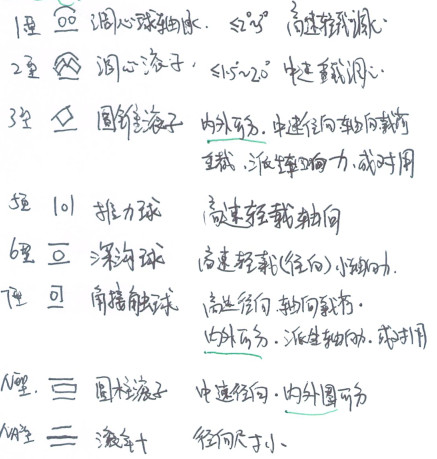 1型 调心球轴承. ≤2°~3° 高速轻载调心
2型 调心滚子. ≤1.5°~2.0° 中速重载调心
3型 圆锥滚子 内外可分. 中速径向轴向载荷
重载. 派生轴向力. 成对用
5型 推力球 高速轻载轴向
6型 深沟球 高速轻载(径向)小轴向力.
7型 角接触球 高速径向.轴向载荷.
内外可分. 派生轴向力. 成对用
N型. 圆柱滚子 中速径向. 内外圈可分
NA型 滚针 径向尺寸小、